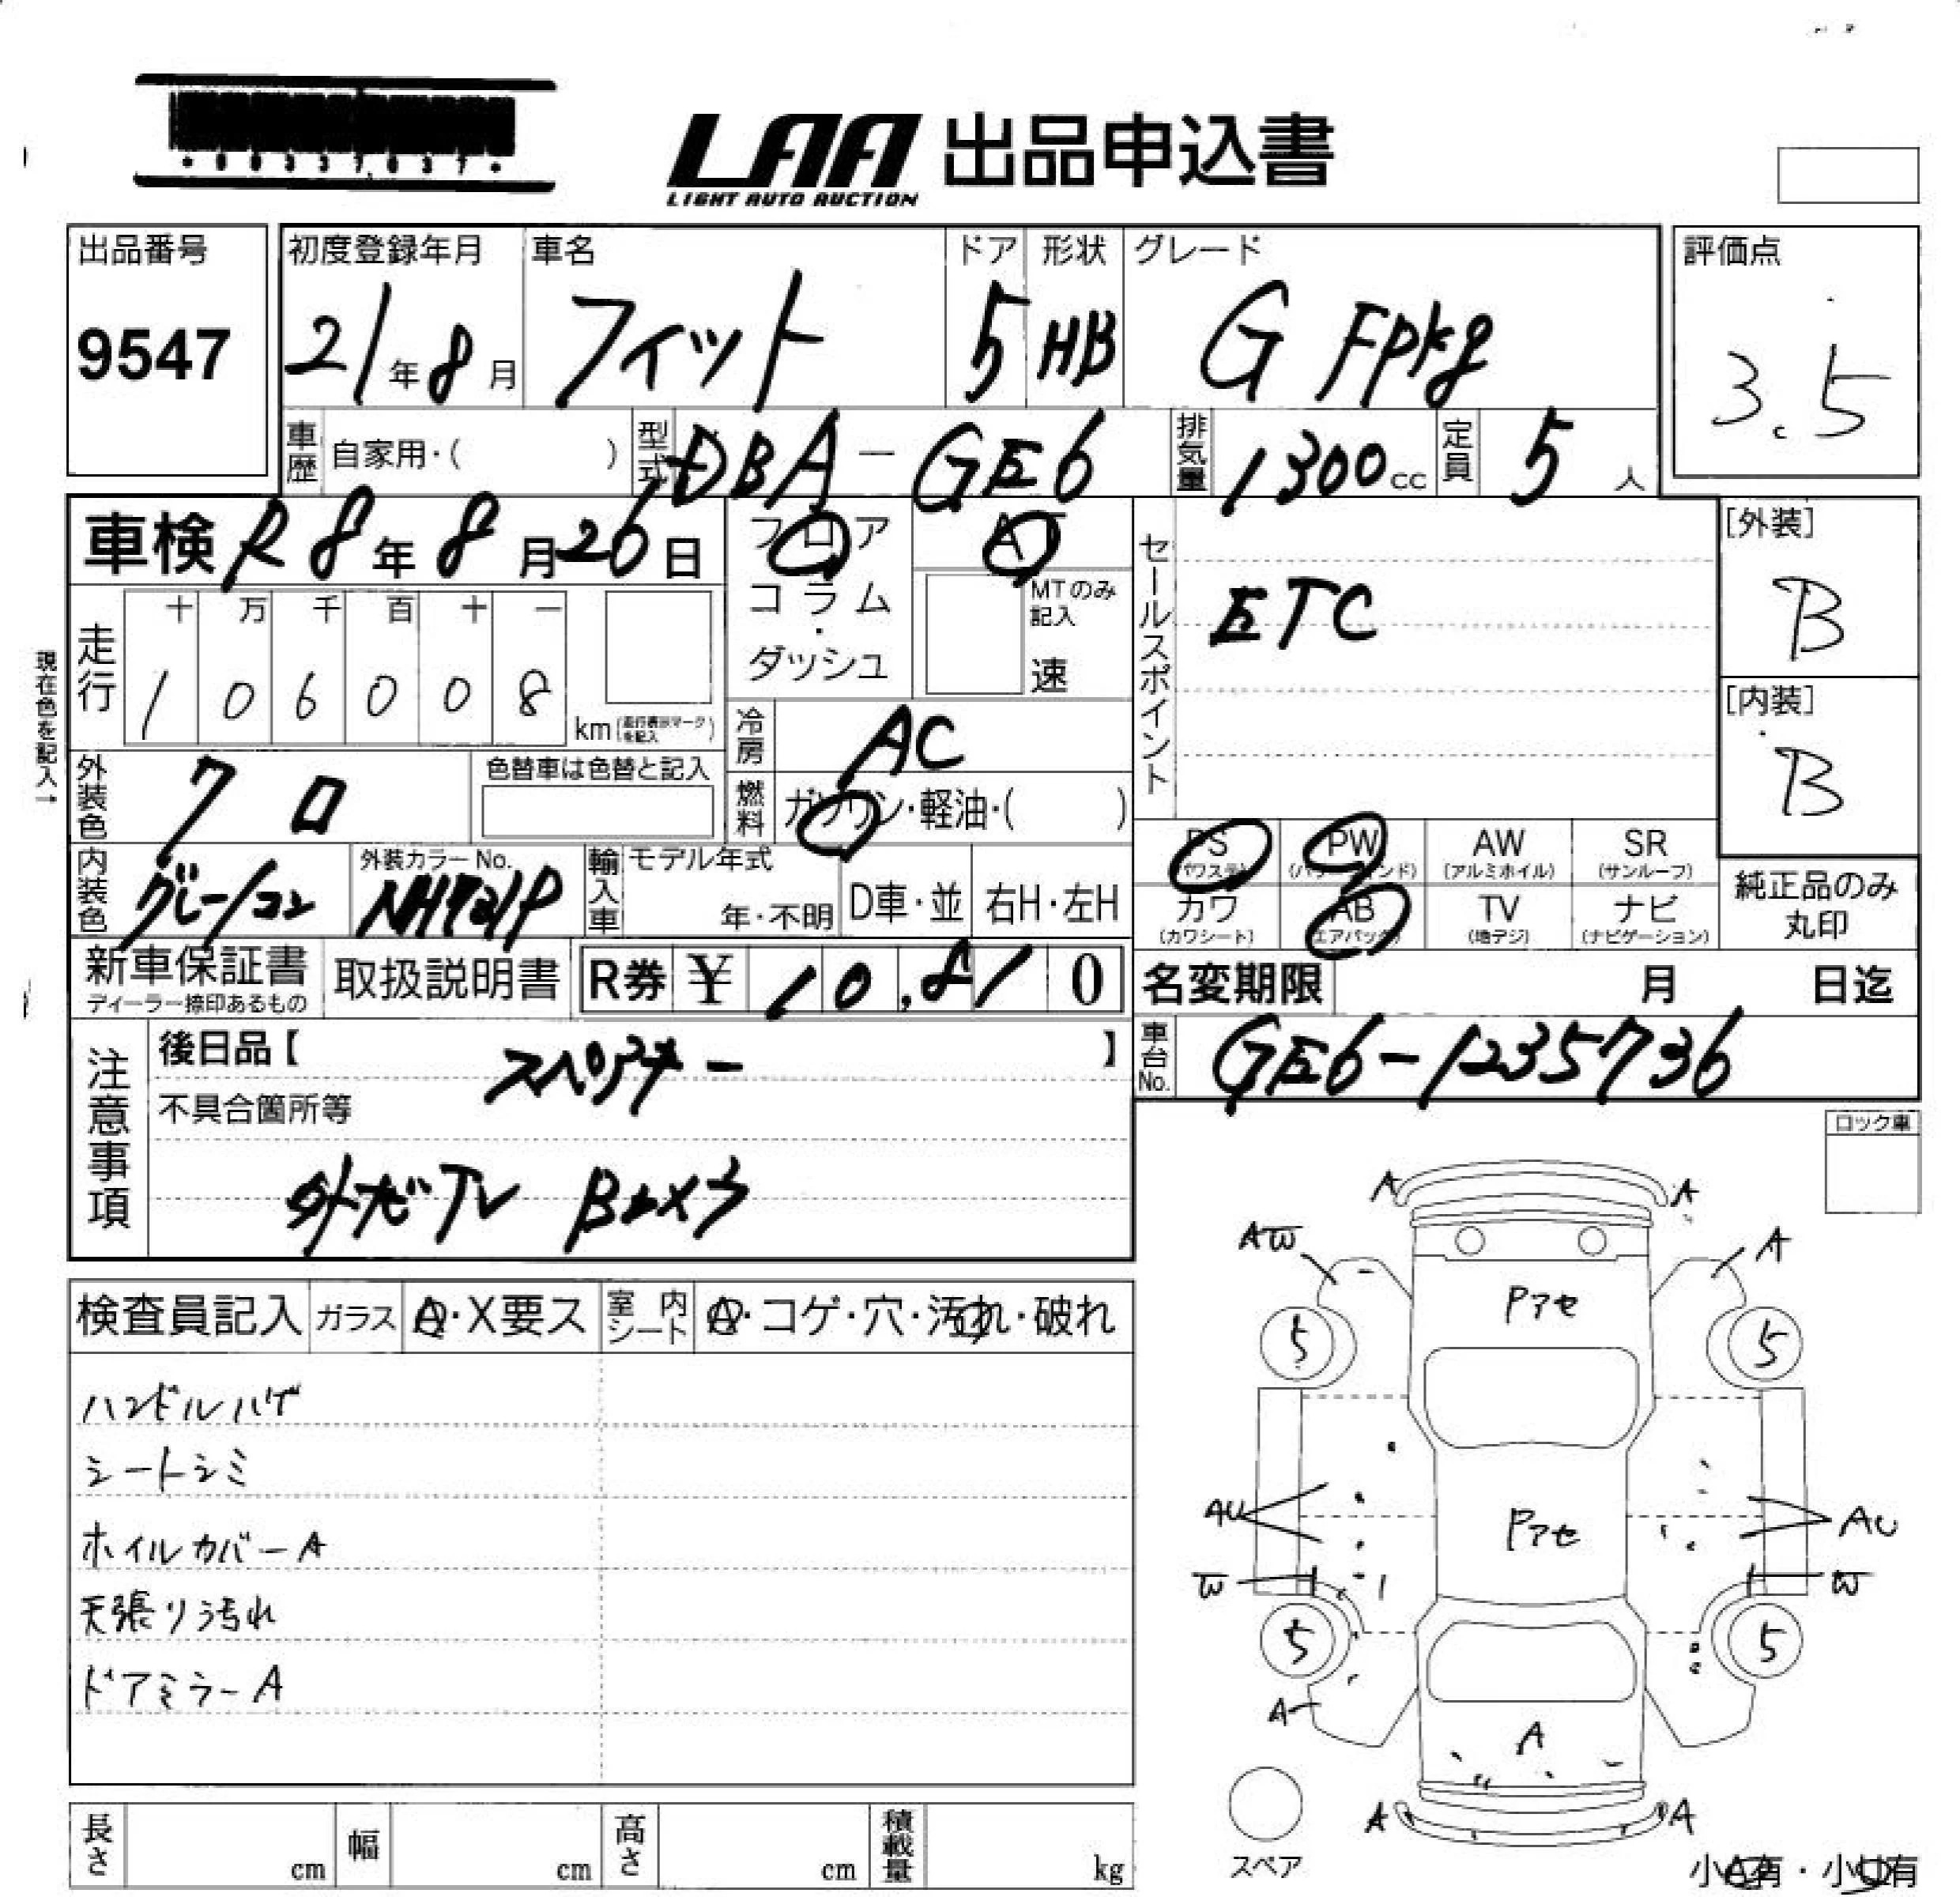 LAA 出品申込書
LIGHT AUTO AUCTION
出品番号
9547
初度登録年月
21年8月
車名
フィット
ドア
5
形状
HB
グレード
G Fpkg
評価点
3.5
車歴 自家用・( )
型式 DBA-GE6
排気量 1300cc
定員 5人
車検 R8年8月26日
フロア
コラム
・
ダッシュ
AT
MTのみ
記入
速
セールスポイント
ETC
[外装]
B
[内装]
B
現在色を記入→
走行
十 万 千 百 十 一
1 0 6 0 0 8
km(走行表示マークを記入)
冷房 AC
燃料 ガソリン・軽油・( )
外装色 クロ
色替車は色替と記入
内装色 グレー/コン
外装カラーNo.
NH731P
輸入車
モデル年式
年・不明
D車・並
右H・左H
PS
(パワステ)
PW
(パワーウインド)
AW
(アルミホイル)
SR
(サンルーフ)
カワ
(カワシート)
AB
(エアバッグ)
TV
(地デジ)
ナビ
(ナビゲーション)
純正品のみ
丸印
新車保証書
ディーラー捺印あるもの
取扱説明書
R券 ¥ 10,810
名変期限 月 日迄
車台No. GE6-1235736
注意事項
後日品【 】
不具合箇所等
検査員記入
ガラス A・X要ス
室内シート A・コゲ・穴・汚れ・破れ
ハンドルハゲ
シートシミ
ホイルカバーA
天張り汚れ
ドアミラーA
ロック車
A A
AW A
Pアセ
5 5
AU Pアセ AU
W W
5 5
A
A
A A
スペア
小A有・小U有
長さ cm
幅 cm
高さ cm
積載量 kg